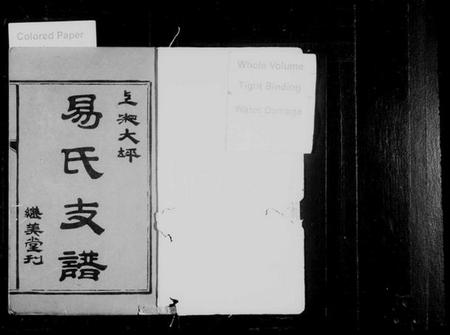 Colored Paper
Whole Volume
Tight Binding
Water Damage
上湘大坪
易氏支譜
繼美堂刊